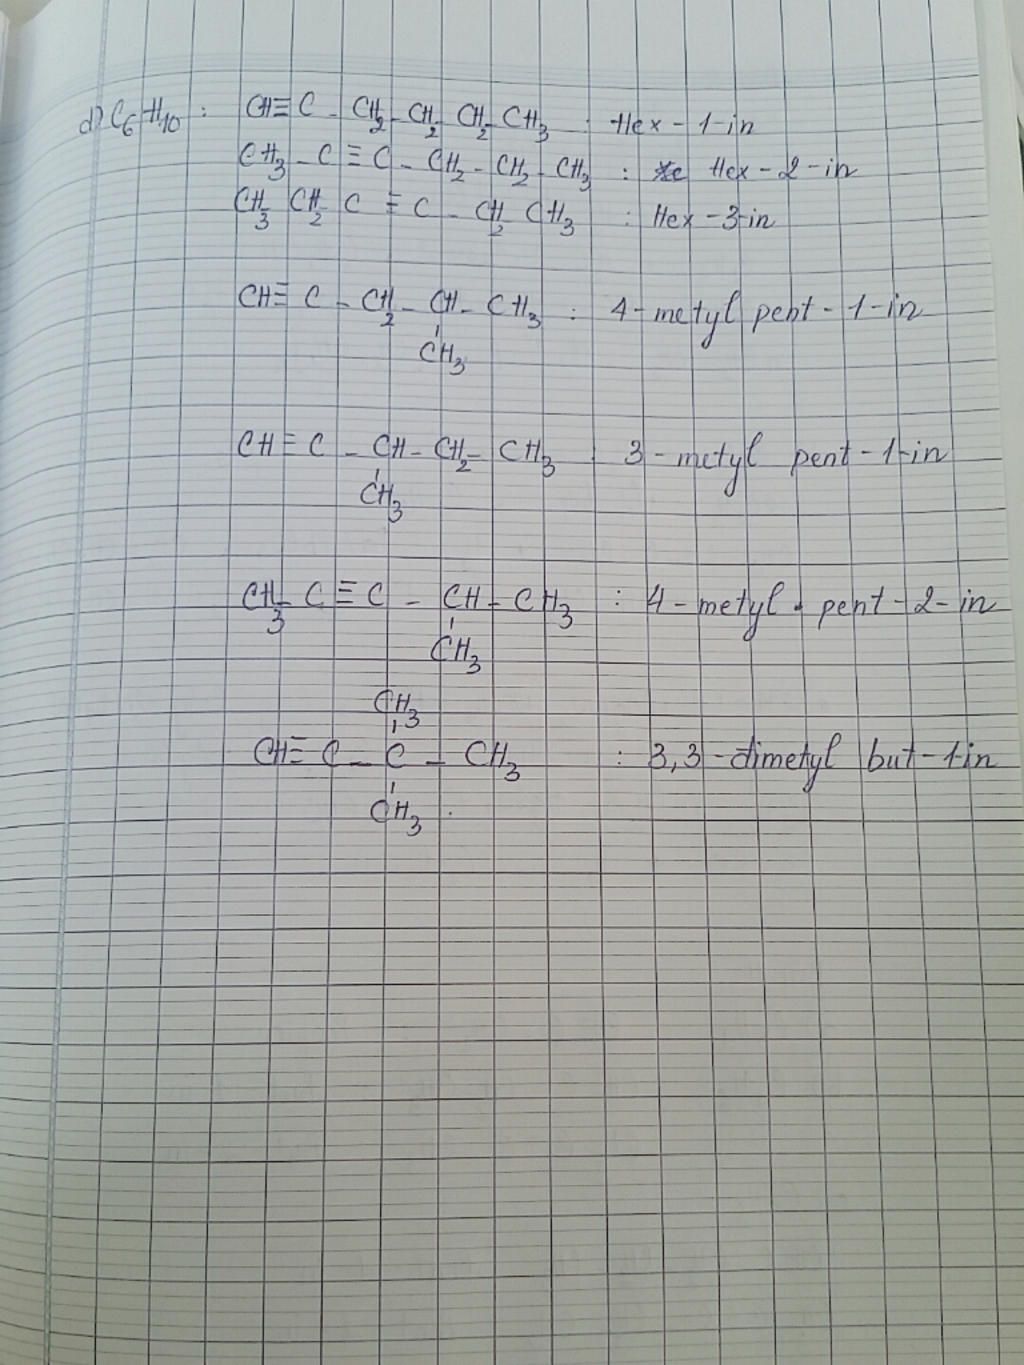 d) C6H10 : CH≡C - CH2 - CH2 - CH2 - CH3 : Hex-1-in
CH3 - C ≡ C - CH2 - CH2 - CH3 : Hex-2-in
CH3 CH2 C ≡ C - CH2 CH3 : Hex-3-in
CH≡C - CH2 - CH - CH3 : 4-metyl pent-1-in
CH3
CH≡C - CH - CH2 - CH3 : 3-metyl pent-1-in
CH3
CH3 - C ≡ C - CH - CH3 : 4-metyl pent-2-in
CH3
CH3
CH≡C - C - CH3 : 3,3-dimetyl but-1-in
CH3